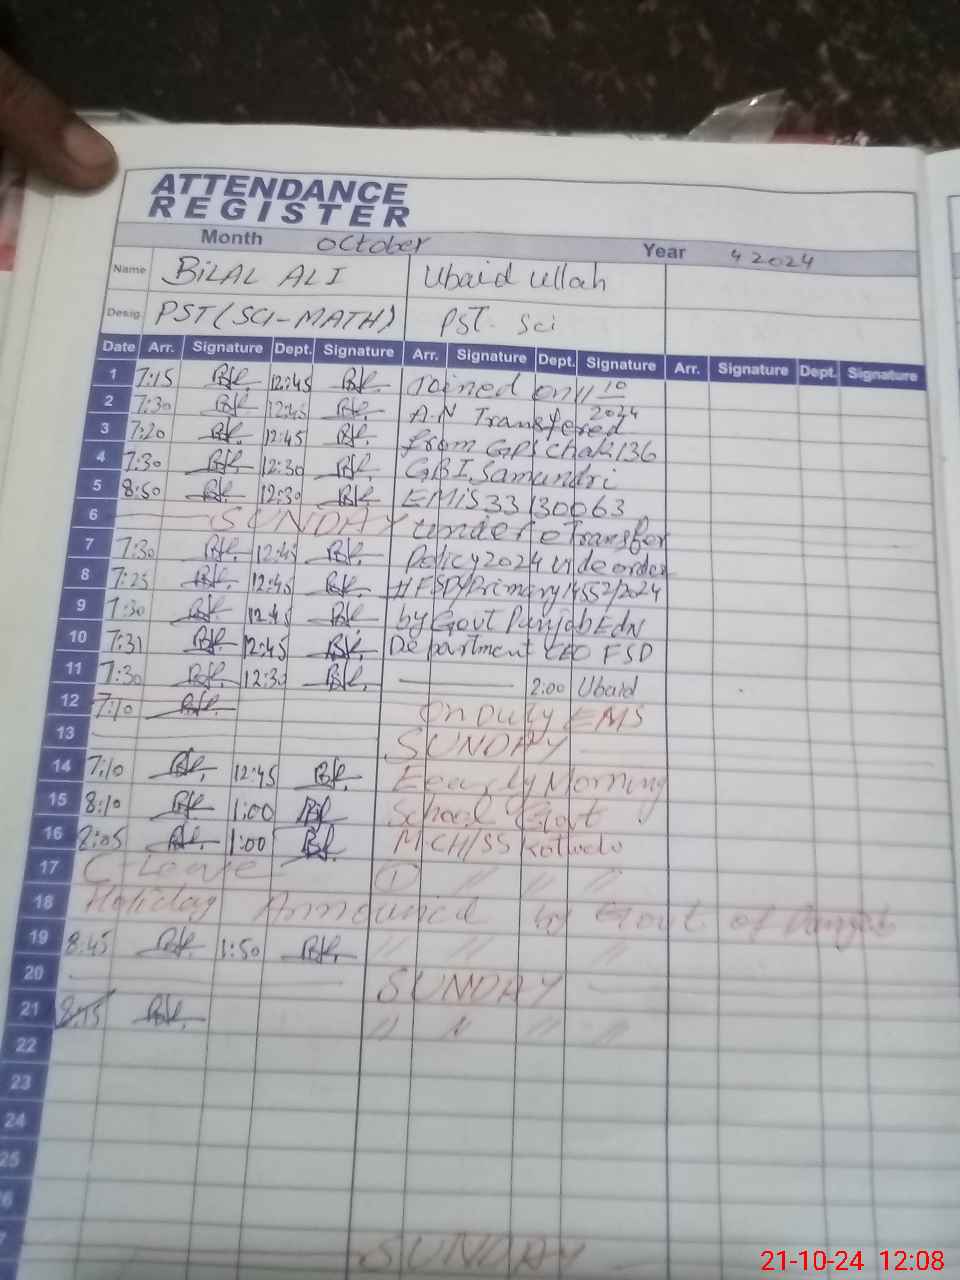 ATTENDANCE
REGISTER
Month October Year 4 2024
Name BILAL ALI Ubaid ullah
Desig. PST (SCI-MATH) PST. Sci
Date Arr. Signature Dept. Signature Arr. Signature Dept. Signature Arr. Signature Dept. Signature
1 7:15 12:45 Joined on 11 10
2 7:30 12:45 A.N Transfered 2024
3 7:20 12:45 from GPS Chak 136
4 7:30 12:30 GB I Samundri
5 8:50 12:30 EMIS 33130063
6 SUNDAY under e Transfer
7 7:30 12:45 Policy 2024 vide order
8 7:25 12:45 # FSD/Primary/4552/2024
9 7:30 12:45 by Govt Punjab Edn
10 7:31 12:45 Department CEO FSD
11 7:30 12:30 2:00 Ubaid
12 7:10 On Duty EMS
13 SUNDAY
14 7:10 12:45 Morning
15 8:10 1:00 School Govt
16 8:05 1:00
17 C-Leave 1 // // //
18 Holiday Announced by Govt. of Punjab
19 8:45 1:50 // // // //
20 SUNDAY
21 8:15 // // // //
22
23
24
25
SUNDAY
21-10-24 12:08